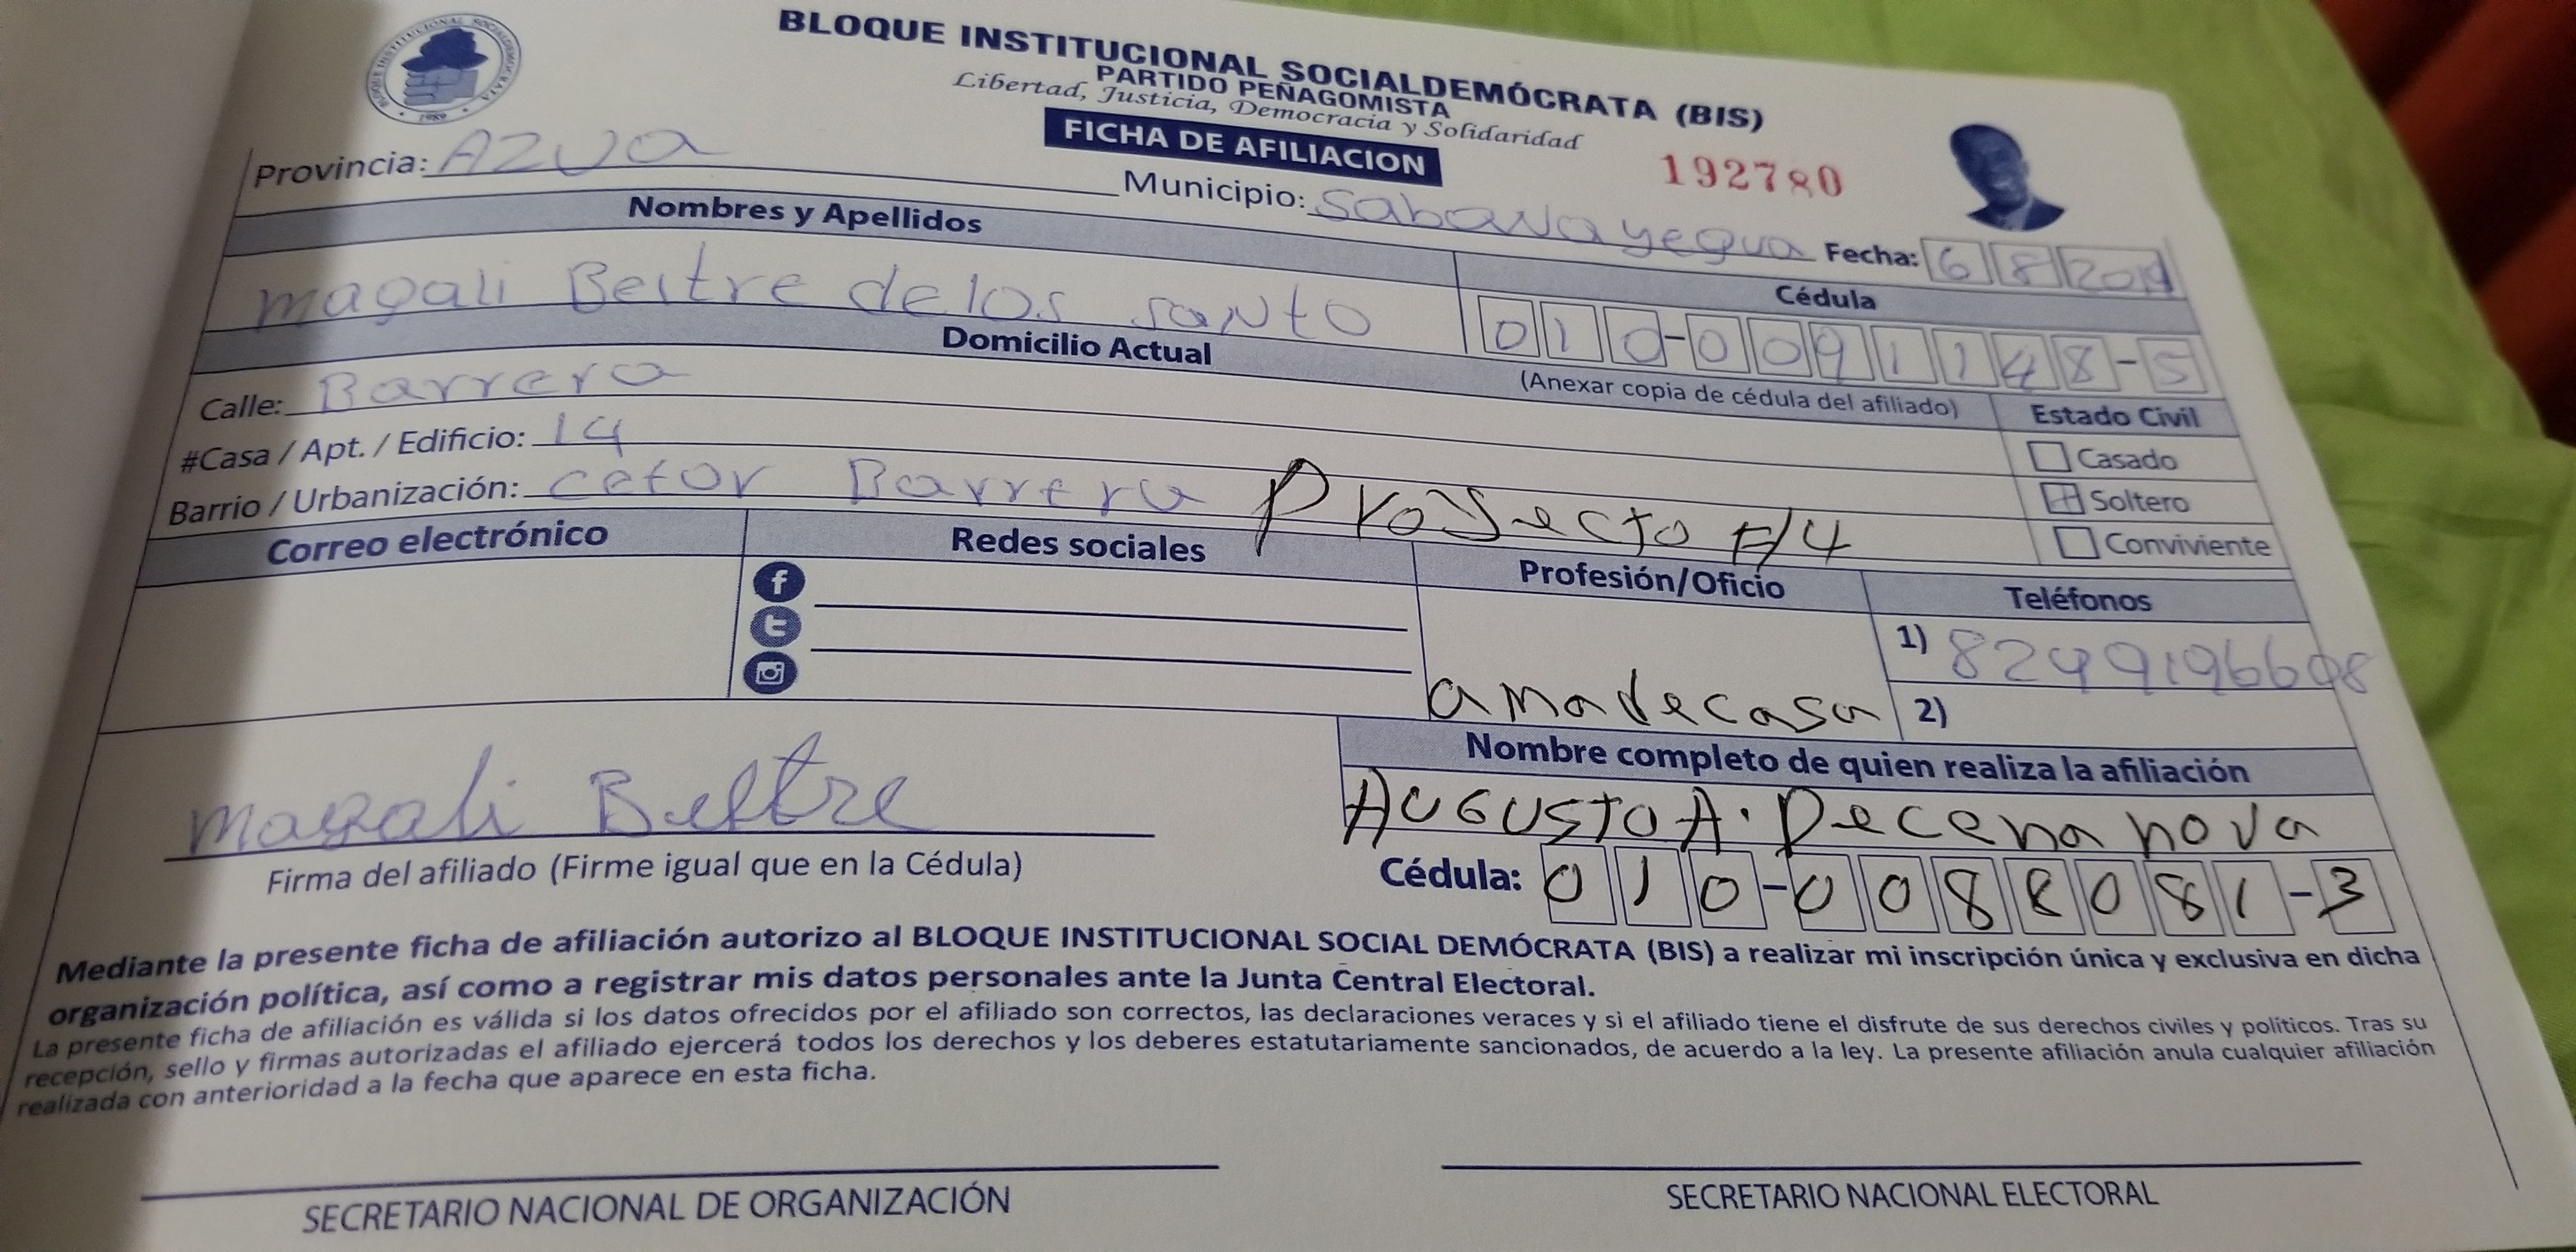 BLOQUE INSTITUCIONAL SOCIALDEMOCRATA
1989
BLOQUE INSTITUCIONAL SOCIALDEMÓCRATA (BIS)
PARTIDO PEÑAGOMISTA
Libertad, Justicia, Democracia y Solidaridad
FICHA DE AFILIACION
192780
Provincia: AZUA Municipio: Sabana yegua Fecha: 6 8 2019
Nombres y Apellidos Cédula
magali Beltre de los santo 010-0091148-5
(Anexar copia de cédula del afiliado)
Domicilio Actual Estado Civil
Calle: Barrera
#Casa / Apt. / Edificio: 14
Barrio / Urbanización: cetor Barrera Proyecto F/4
Casado
Soltero
Conviviente
Correo electrónico Redes sociales Profesión/Oficio Teléfonos
amadecasa
1)
2)
magali Beltre
Firma del afiliado (Firme igual que en la Cédula)
Nombre completo de quien realiza la afiliación
AUGUSTO A. Decena nova
Cédula: 010-0088081-3
Mediante la presente ficha de afiliación autorizo al BLOQUE INSTITUCIONAL SOCIAL DEMÓCRATA (BIS) a realizar mi inscripción única y exclusiva en dicha
organización política, así como a registrar mis datos personales ante la Junta Central Electoral.
La presente ficha de afiliación es válida si los datos ofrecidos por el afiliado son correctos, las declaraciones veraces y si el afiliado tiene el disfrute de sus derechos civiles y políticos. Tras su
recepción, sello y firmas autorizadas el afiliado ejercerá todos los derechos y los deberes estatutariamente sancionados, de acuerdo a la ley. La presente afiliación anula cualquier afiliación
realizada con anterioridad a la fecha que aparece en esta ficha.
SECRETARIO NACIONAL DE ORGANIZACIÓN SECRETARIO NACIONAL ELECTORAL